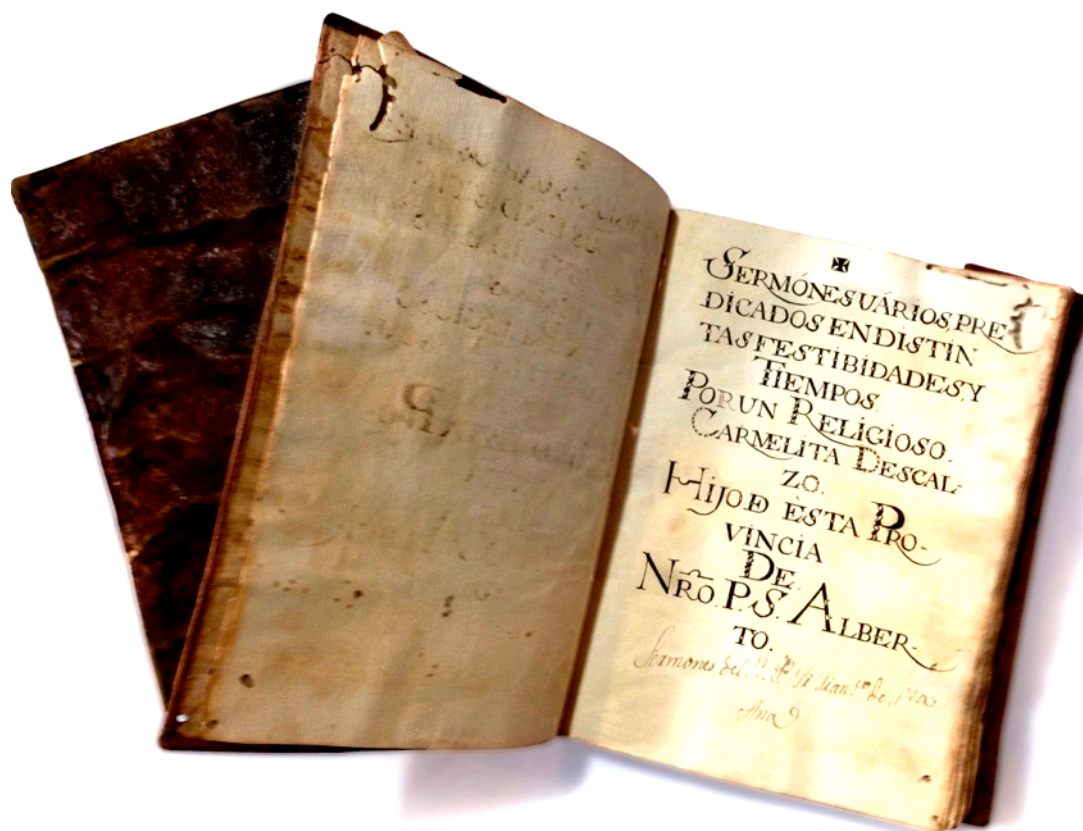 SERMÓNES UÁRIOS, PRE
DICADOS EN DISTIN
TAS FESTIBIDADES, Y
TIEMPOS.
POR UN RELIGIOSO.
CARMELITA DESCAL-
ZO.
HIJO DE ÈSTA PRO-
VINCIA
DE.
NRÕ. P. S. ALBER-
TO.
Sermones del
Ana